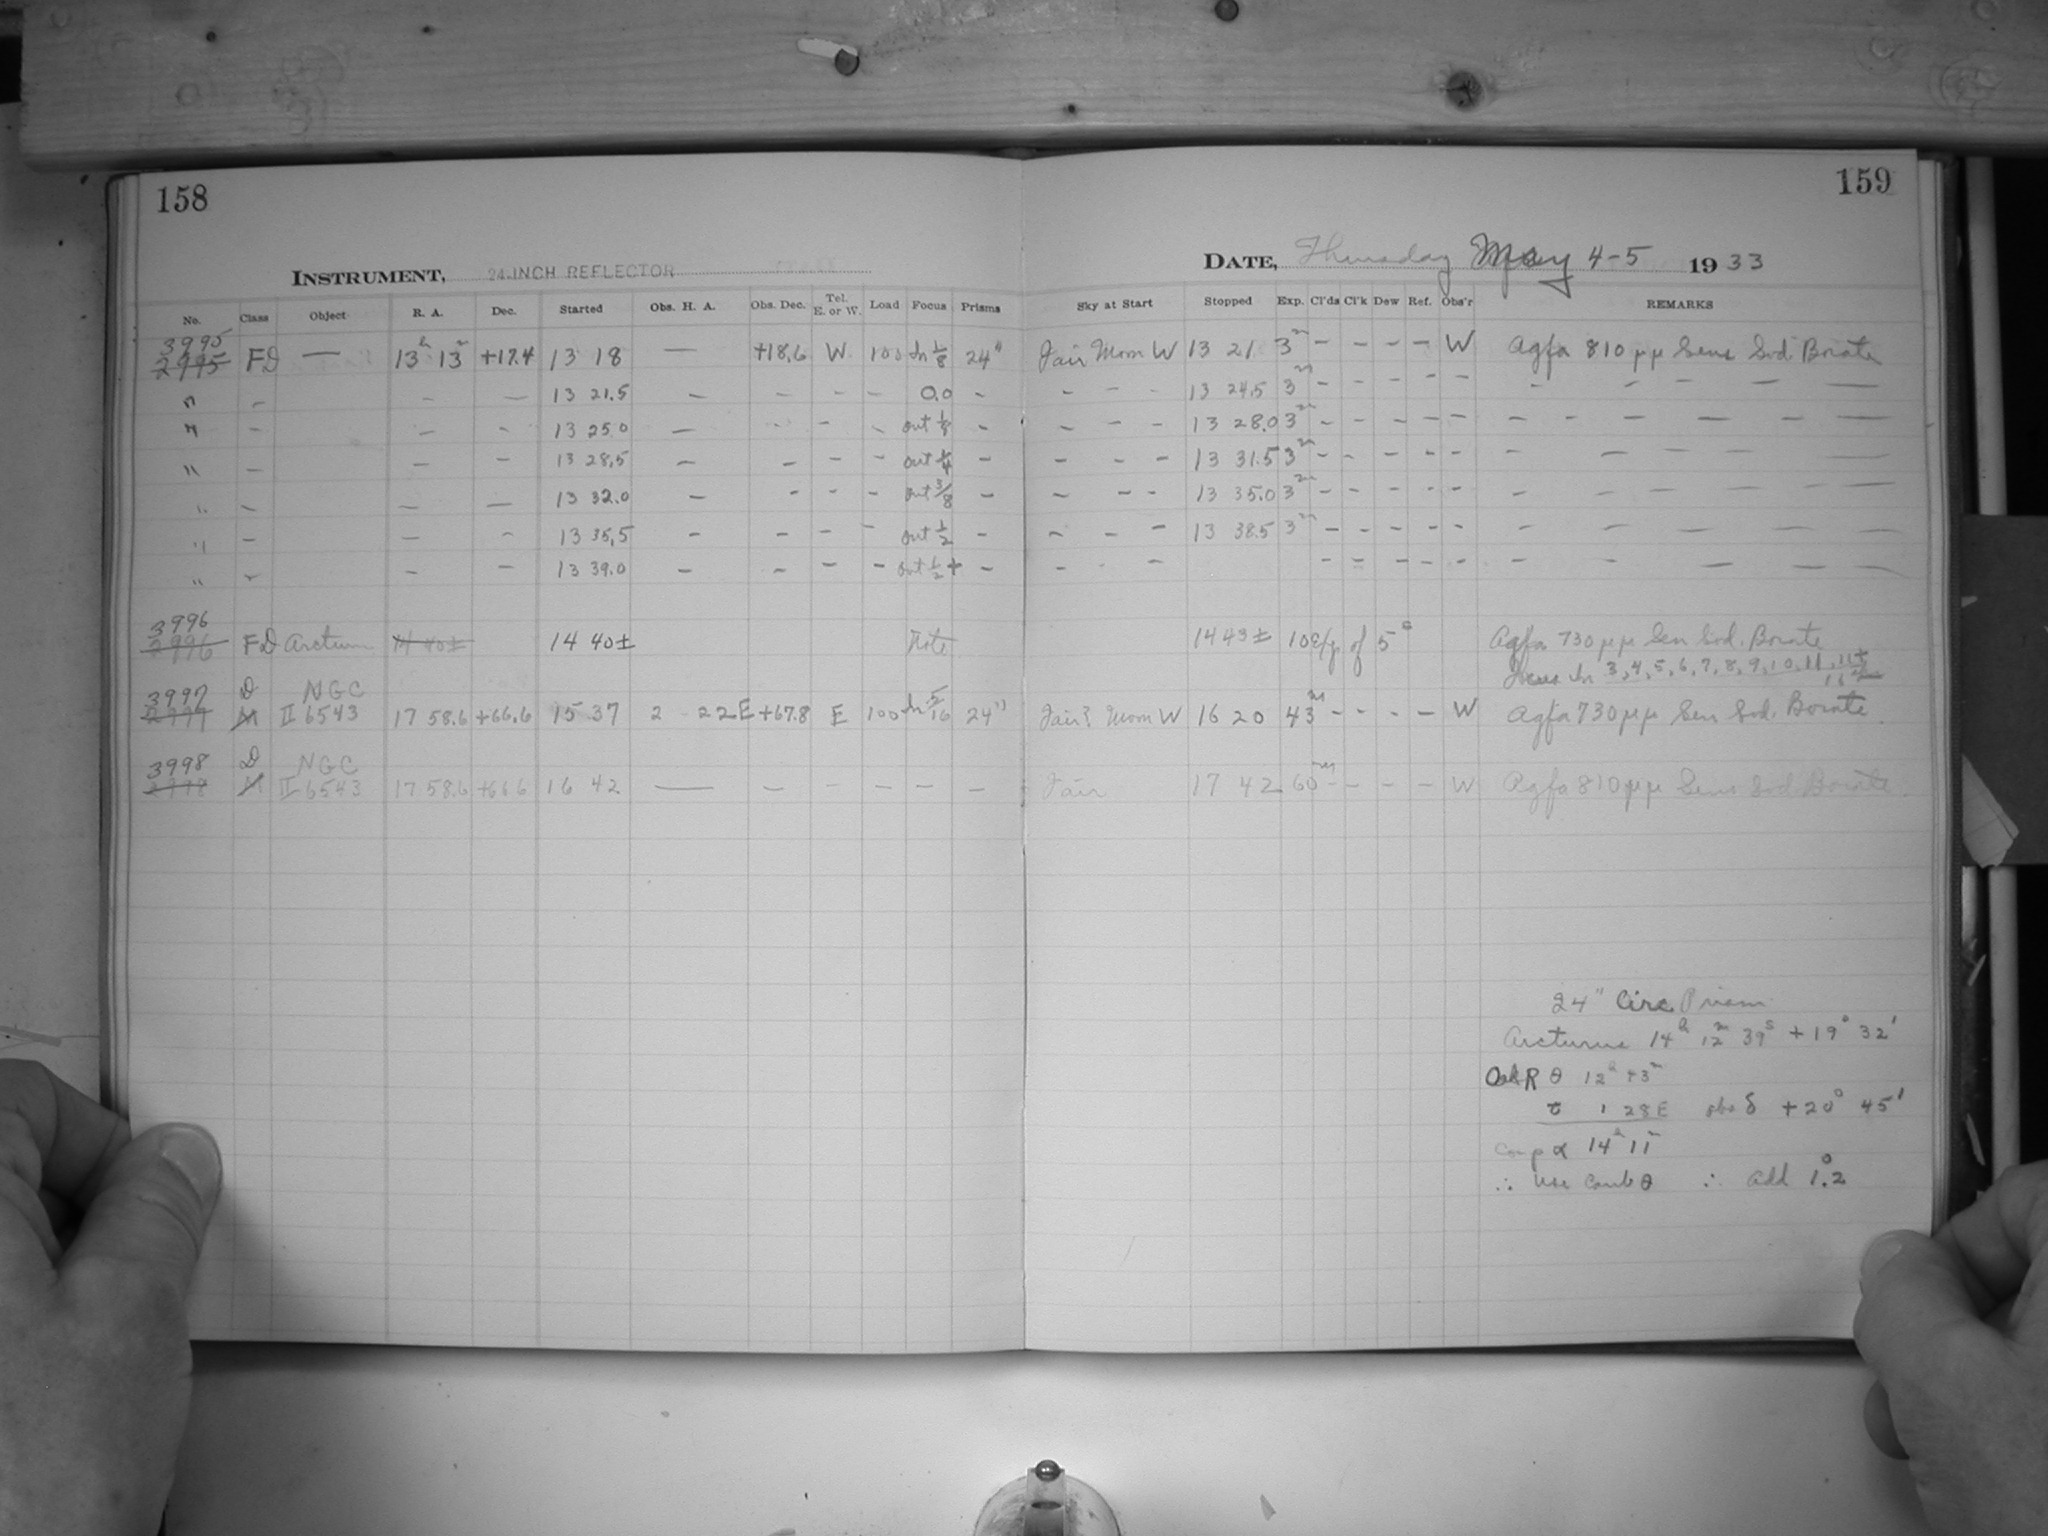 158
INSTRUMENT, 24-INCH REFLECTOR
No. Class Object R. A. Dec. Started Obs. H. A. Obs. Dec. Tel. E. or W. Load Focus Prisms
3995
2995 FD — 13h 13m +17.4 13 18 — +18.6 W 100 In 1/8 24"
" – – — 13 21.5 — – – – 0.0 –
" – – – 13 25.0 — – – – out 1/8 –
" – – – 13 28.5 – – – – out 1/4 –
" – – — 13 32.0 – – – – out 3/8 –
" – – – 13 35.5 – – – – out 1/2 –
" – – – 13 39.0 – – – – out 1/2 + –
3996
2996 FD Arcturus 14 40± 14 40± Note
3997 D NGC
2997 M II 6543 17 58.6 +66.6 15 37 2 22E +67.8 E 100 In 5/16 24"
3998 D NGC
2998 M II 6543 17 58.6 +66.6 16 42 — – – – – –
159
DATE, Thursday May 4-5 1933
Sky at Start Stopped Exp. Cl'ds Cl'k Dew Ref. Obs'r REMARKS
Fair Moon W 13 21 3m – – – – W Agfa 810 μμ Sens Sod. Borate
– – – 13 24.5 3m – – – – – – – – – —
– – – 13 28.0 3m – – – – – – – – – — —
– – – 13 31.5 3m – – – – – – – – – —
– – – 13 35.0 3m – – – – – – – – – —
– – – 13 38.5 3m – – – – – – – – – —
– – – – – – – – – – – — —
14 43± 10 Exp. of 5s Agfa 730 μμ Sen Sod. Borate
Focus In 3, 4, 5, 6, 7, 8, 9, 10, 11,
Fair? Moon W 16 20 43m – – – – W Agfa 730 μμ Sen Sod. Borate
Fair 17 42 60m – – – – W Agfa 810 μμ Sens Sod Borate
24" Circ. Prism
Arcturus 14h 12m 39s +19° 32'
R θ 12h 43m
τ 1 28E obs δ +20° 45'
Comp α 14h 11m
∴ use θ ∴ add 1°.2